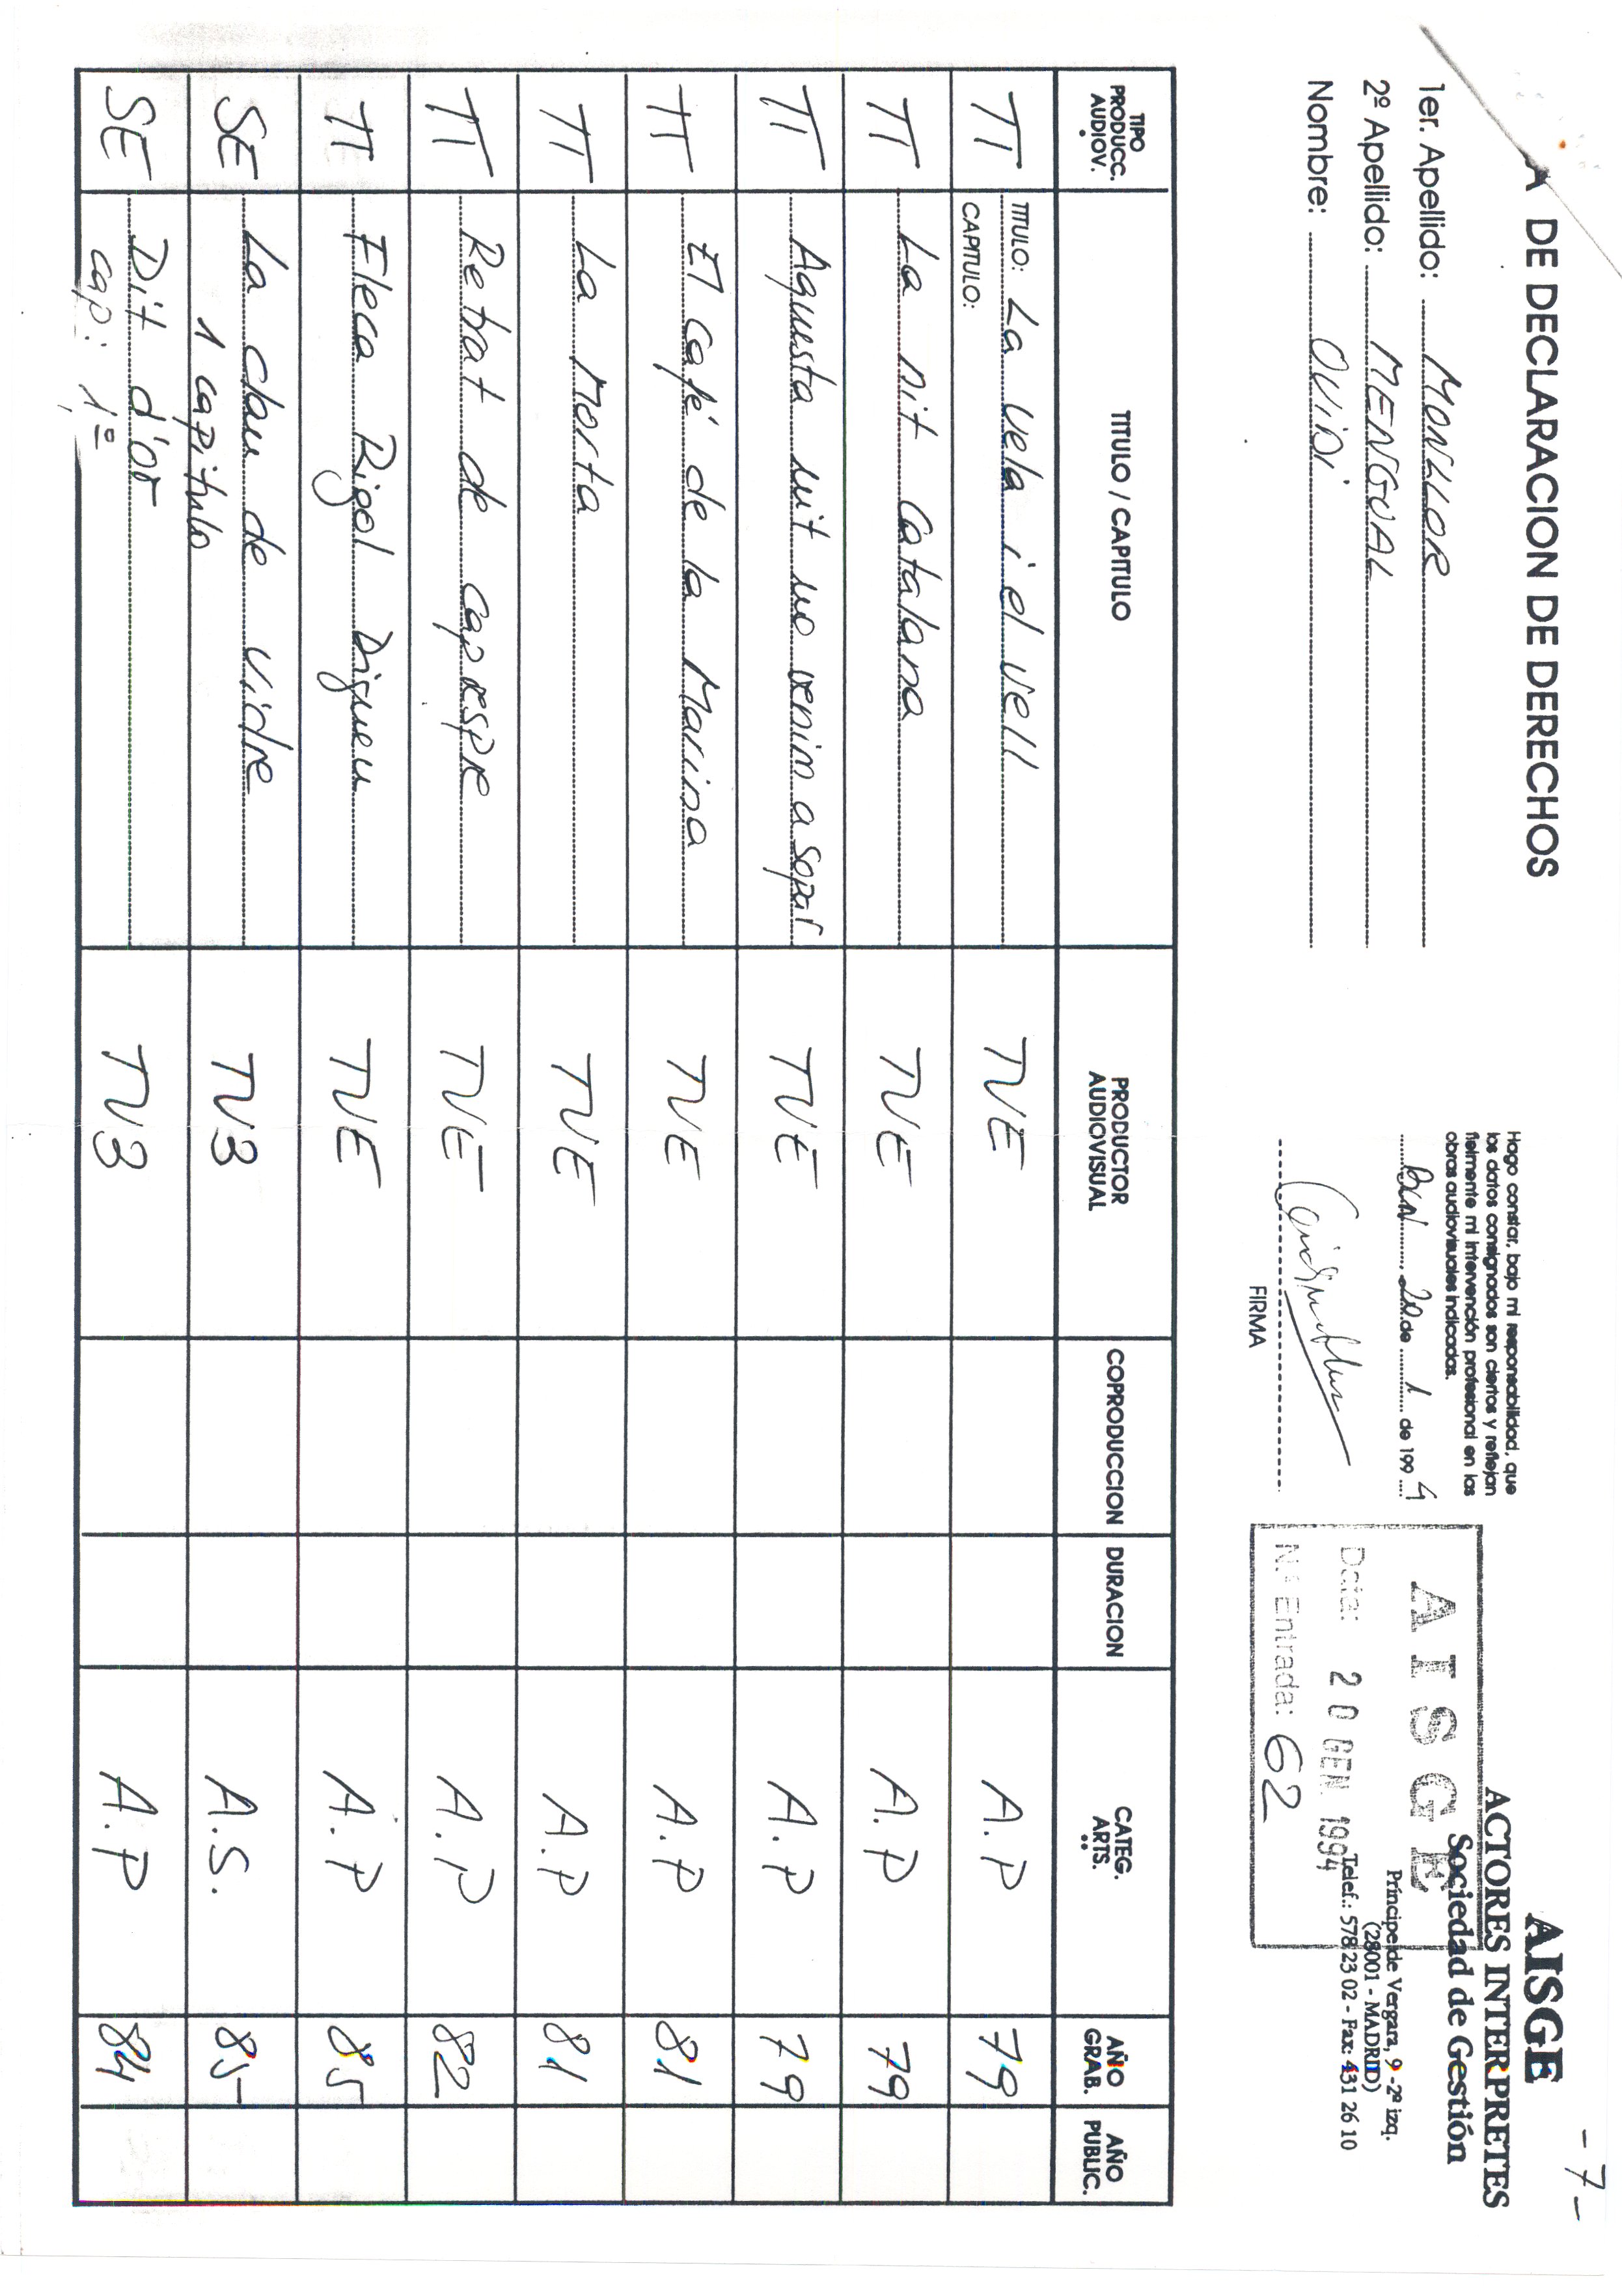 - 7 -
A DE DECLARACION DE DERECHOS
1er. Apellido: MONLLOR
2º Apellido: MENGUAL
Nombre: OVIDI
Hago constar, bajo mi responsabilidad, que
los datos consignados son ciertos y reflejan
fielmente mi intervención profesional en las
obras audiovisuales indicadas.
BCN 20 de 1 de 199 4
FIRMA
AISGE
ACTORES INTERPRETES
Sociedad de Gestión
Príncipe de Vergara, 9 - 2º izq.
(28001 - MADRID)
Telef.: 578 23 02 - Fax: 431 26 10
AISGE
Data: 20 GEN. 1994
N.º Entrada: 62
TIPO PRODUCC. AUDIOV. TITULO / CAPITULO PRODUCTOR AUDIOVISUAL COPRODUCCION DURACION CATEG. ARTS. AÑO GRAB. AÑO PUBLIC.
TT TITULO: La vela i el vell TVE A.P 79
CAPITULO:
TT La nit Catalana TVE A.P 79
TT Aquesta nit no venim a sopar TVE A.P 79
TT El Café de la Marina TVE A.P 81
TT La Morta TVE A.P 81
TT Rebat de capespre TVE A.P 82
TT Fleca Rigol Digueu TVE A.P 85
SE La clau de vidre TV3 A.S. 85
1 capitulo
SE Dit d'or TV3 A.P 84
cap: 1º